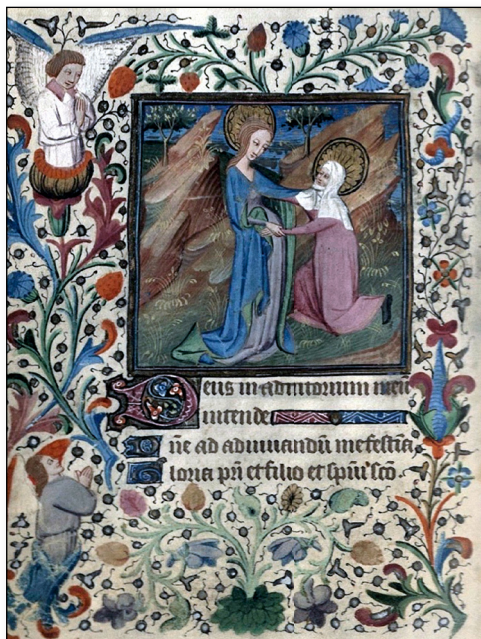 Deus in adiutorium meū
intende
Dn̄e ad adiuuandū me festina
Gloria pr̄i et filio et sp̄ui sc̄o.